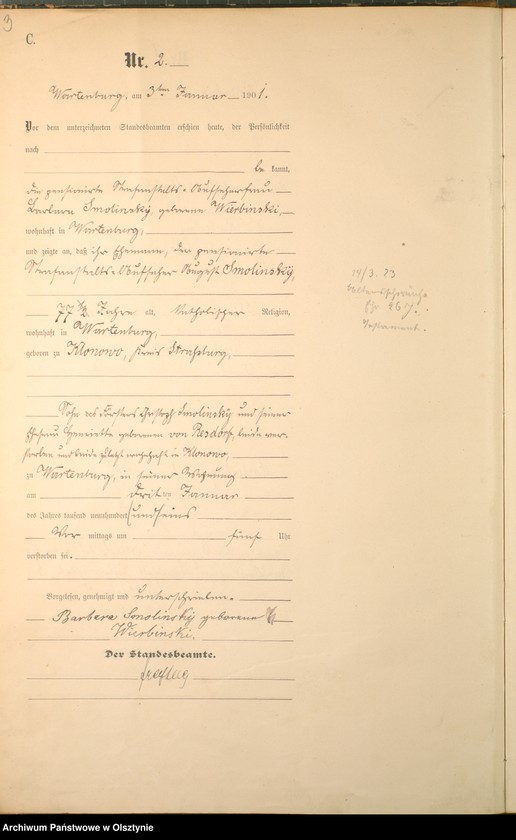 3
C.
Nr. 2.
Wartenburg, am 3ten Januar 1901.
Vor dem unterzeichneten Standesbeamten erschien heute, der Persönlichkeit
nach
be kannt,
die pensionirte Strafanstalts-Aufseherfrau
Barbara Smolinsky, geborene Wierbinski,
wohnhaft in Wartenburg,
und zeigte an, daß ihr Ehemann, der pensionirte
Strafanstalts-Aufseher August Smolinsky,
77 1/2 Jahre alt, katholischer Religion,
wohnhaft in Wartenburg,
geboren zu Klonowo, Kreis Straßburg,
Sohn des Försters Christoph Smolinsky und seiner
Ehefrau Henriette geborenen von Resdorf, beide ver-
storben und beide zuletzt wohnhaft in Klonowo,
zu Wartenburg, in seiner Wohnung
am dritten Januar
des Jahres tausend neunhundert und eins
Vor mittags um fünf Uhr
verstorben sei.
Vorgelesen, genehmigt und unterschrieben.
Barbara Smolinsky geborene
Wierbinski.
Der Standesbeamte.
Freytag
14/3. 23
Testament.
Archiwum Państwowe w Olsztynie